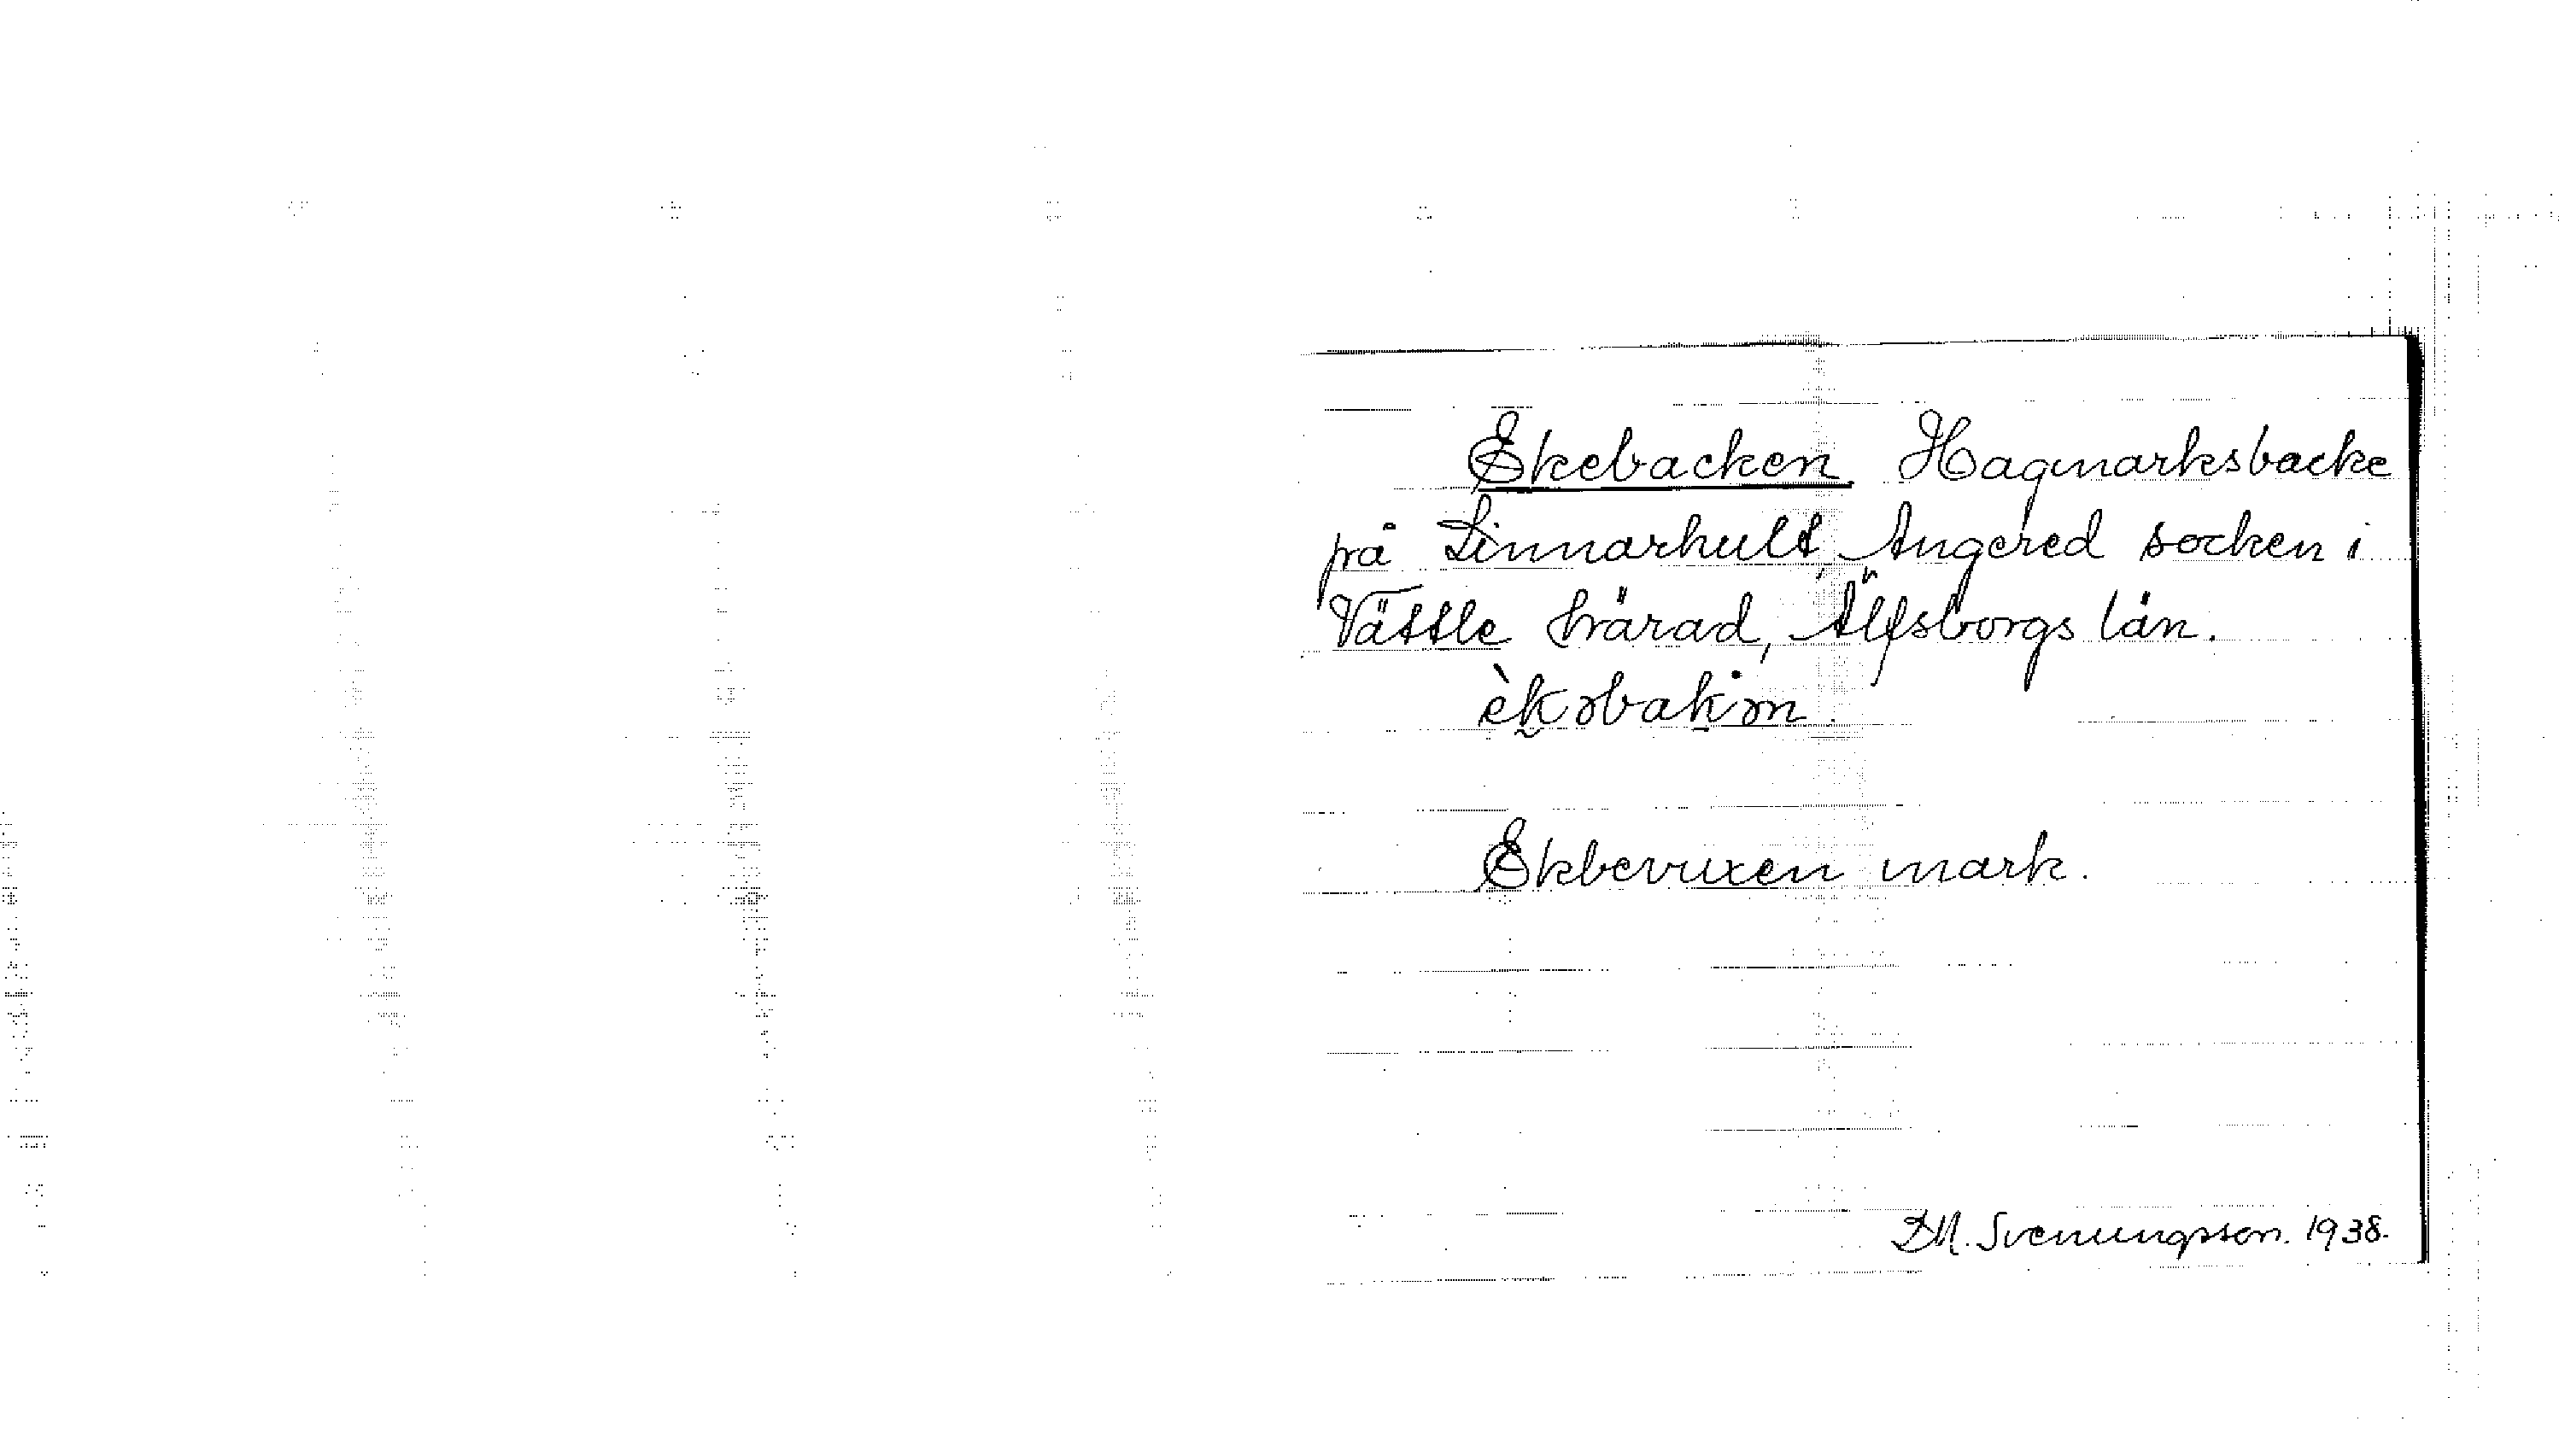 Ekebacken Hagmarksbacke
på Linnarhult, Angered socken i
Vättle härad, Älfsborgs län.
Ekbevuxen mark.
D.M. Svenungsson. 1938.